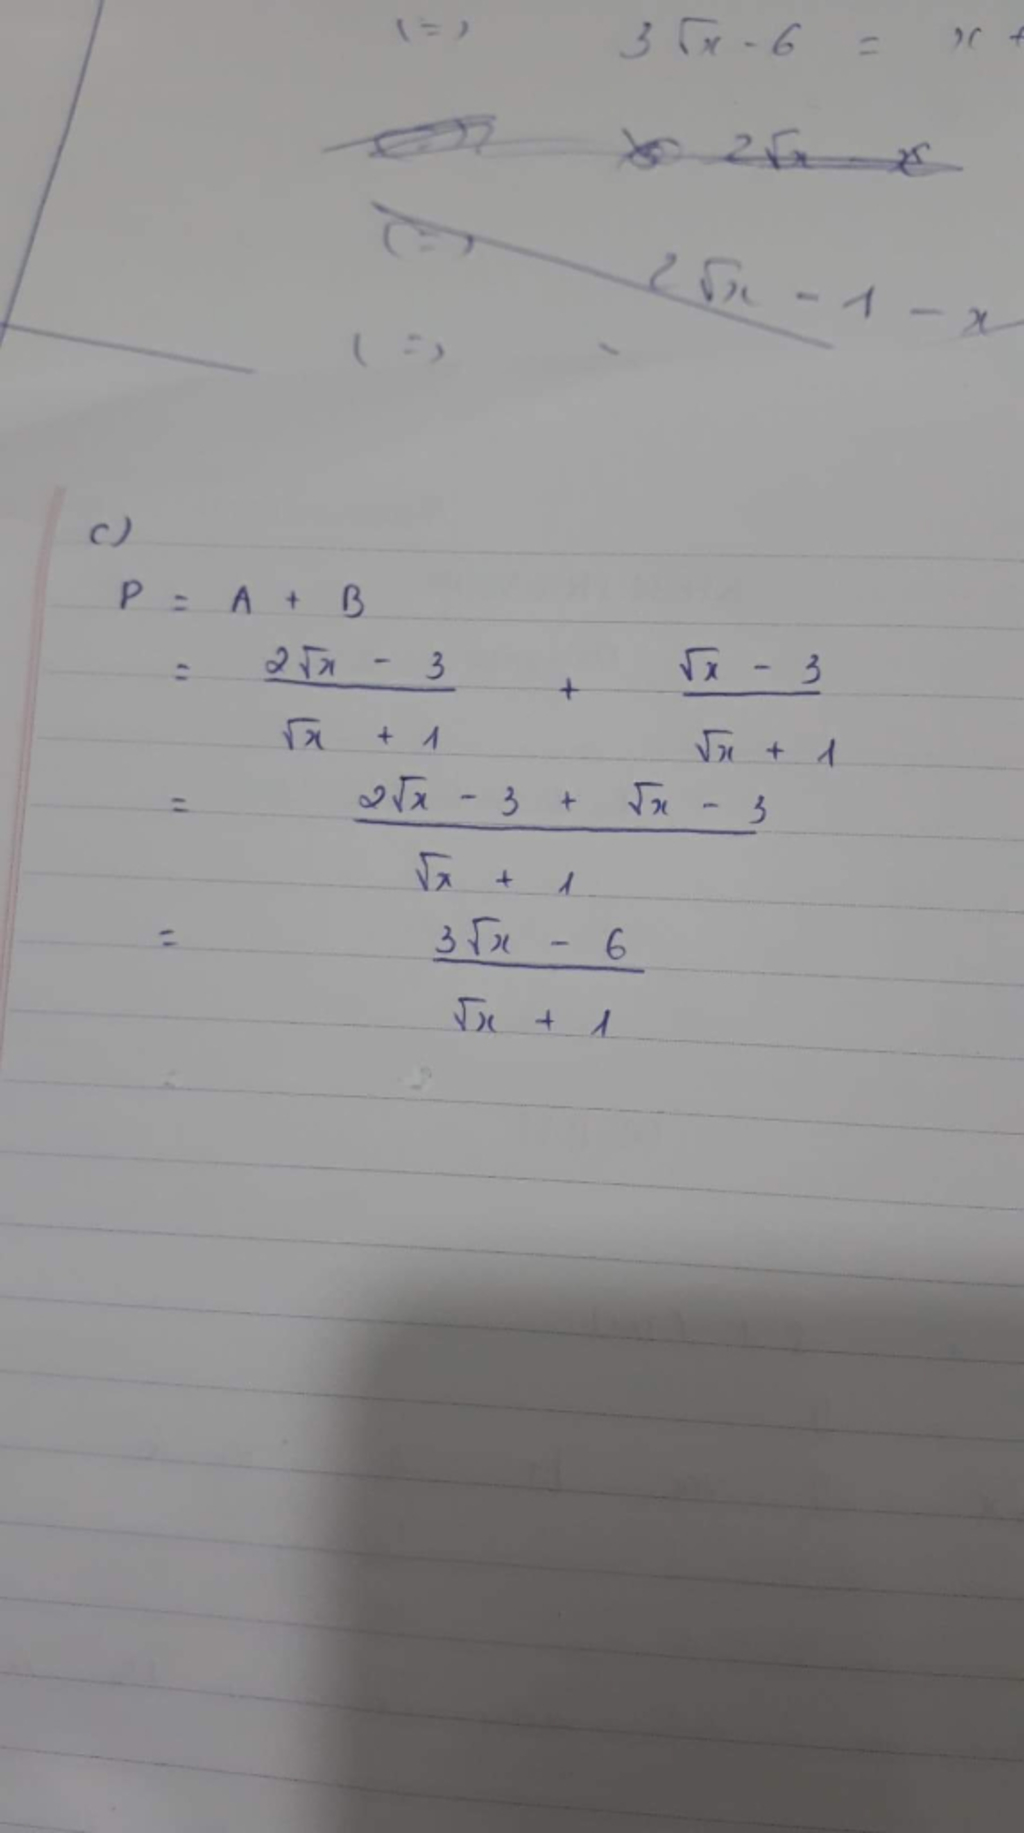 (=) 3√x - 6 = x +
2√x - x
(=) 2√x - 1 - x
(=)
c)
P = A + B
= (2√x - 3)/(√x + 1) + (√x - 3)/(√x + 1)
= (2√x - 3 + √x - 3)/(√x + 1)
= (3√x - 6)/(√x + 1)